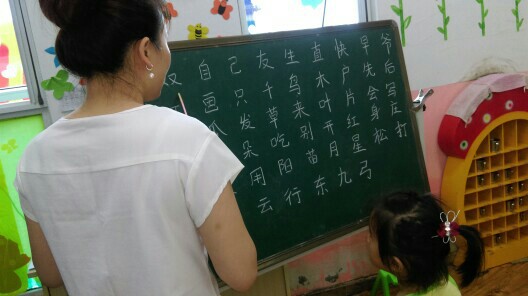 又自己友生直快早爷
画只千鸟木户先后
瓜发草来叶片会写
朵吃别开红身左
用阳苗月星松打
云行东九弓